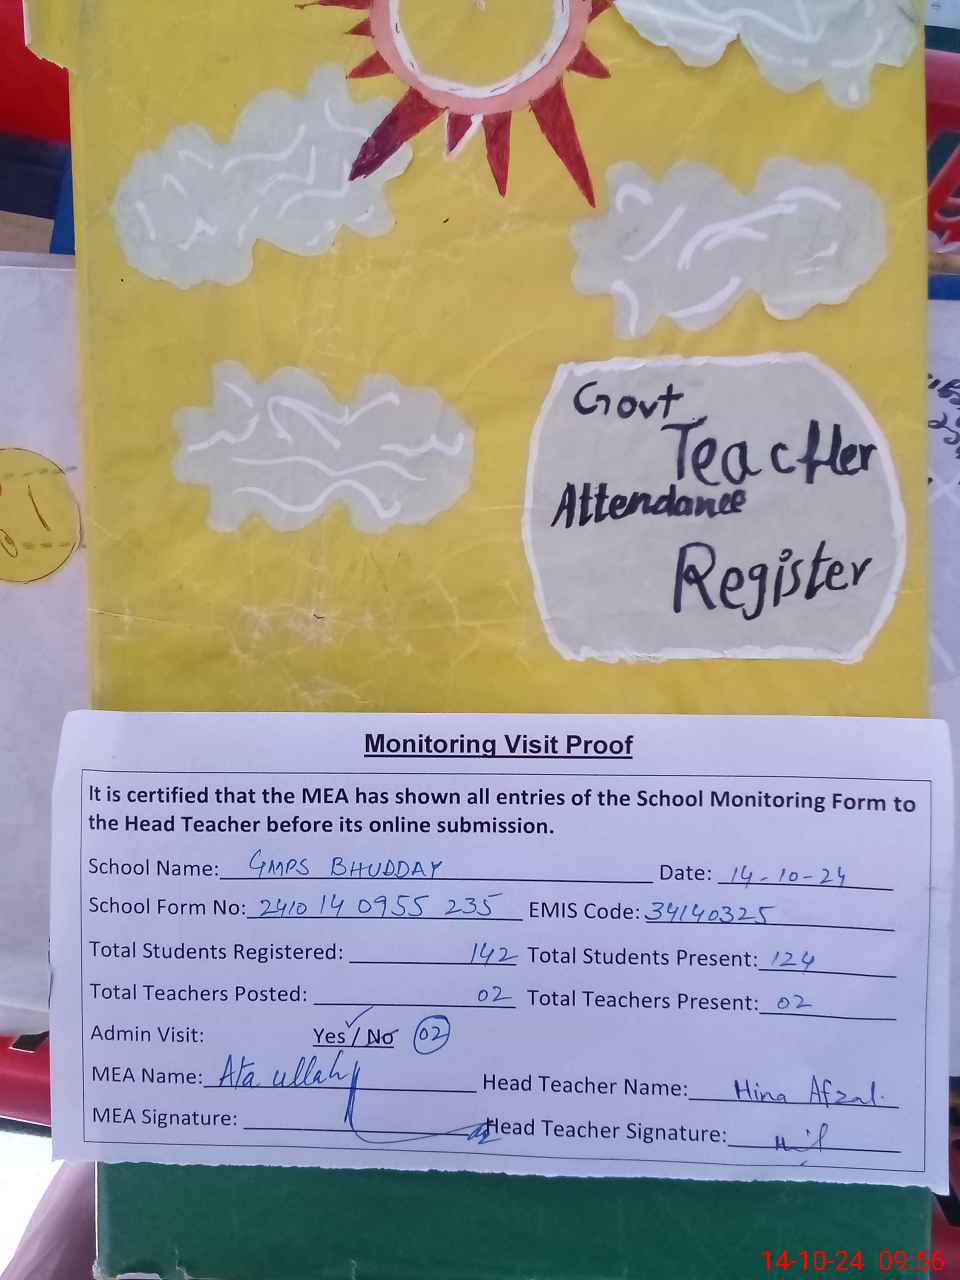 Govt
Teacher
Attendance
Register
Monitoring Visit Proof
It is certified that the MEA has shown all entries of the School Monitoring Form to
the Head Teacher before its online submission.
School Name: GMPS BHUDDAY Date: 14-10-24
School Form No: 2410 14 0955 235 EMIS Code: 34140325
Total Students Registered: 142 Total Students Present: 124
Total Teachers Posted: 02 Total Teachers Present: 02
Admin Visit: Yes / No 02
MEA Name: Ata ullah Head Teacher Name: Hina Afzal.
MEA Signature: Head Teacher Signature:
14-10-24 09:56